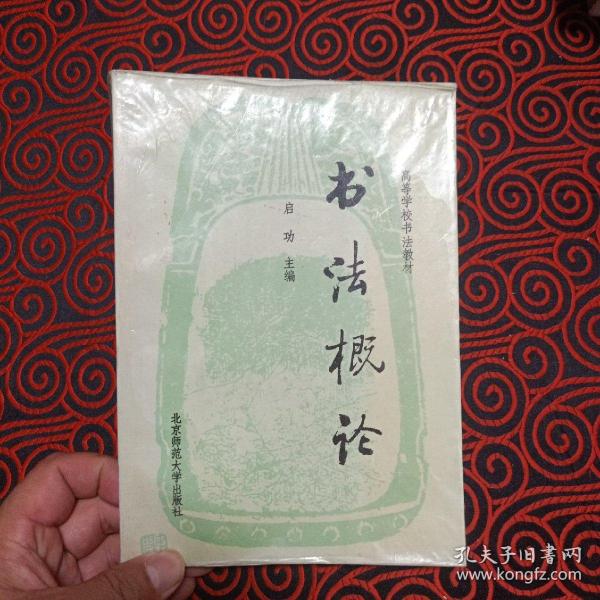 高等学校书法教材
书法概论
启功 主编
北京师范大学出版社
孔夫子旧書网
www.kongfz.com